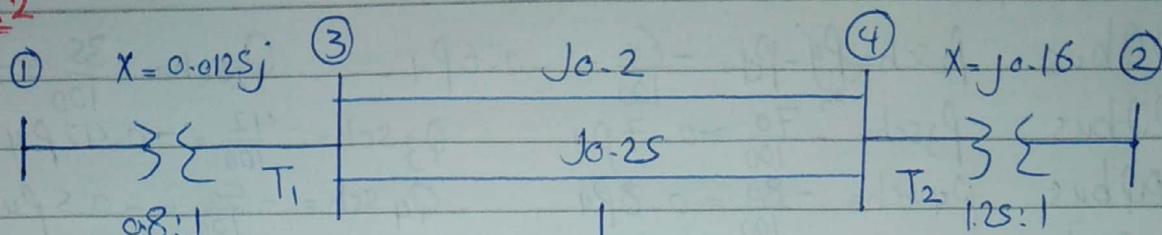 2
① X = 0.0125j ③ J0.2 ④ X = j0.16 ②
J0.25
T1 T2
0.8:1 1.25:1